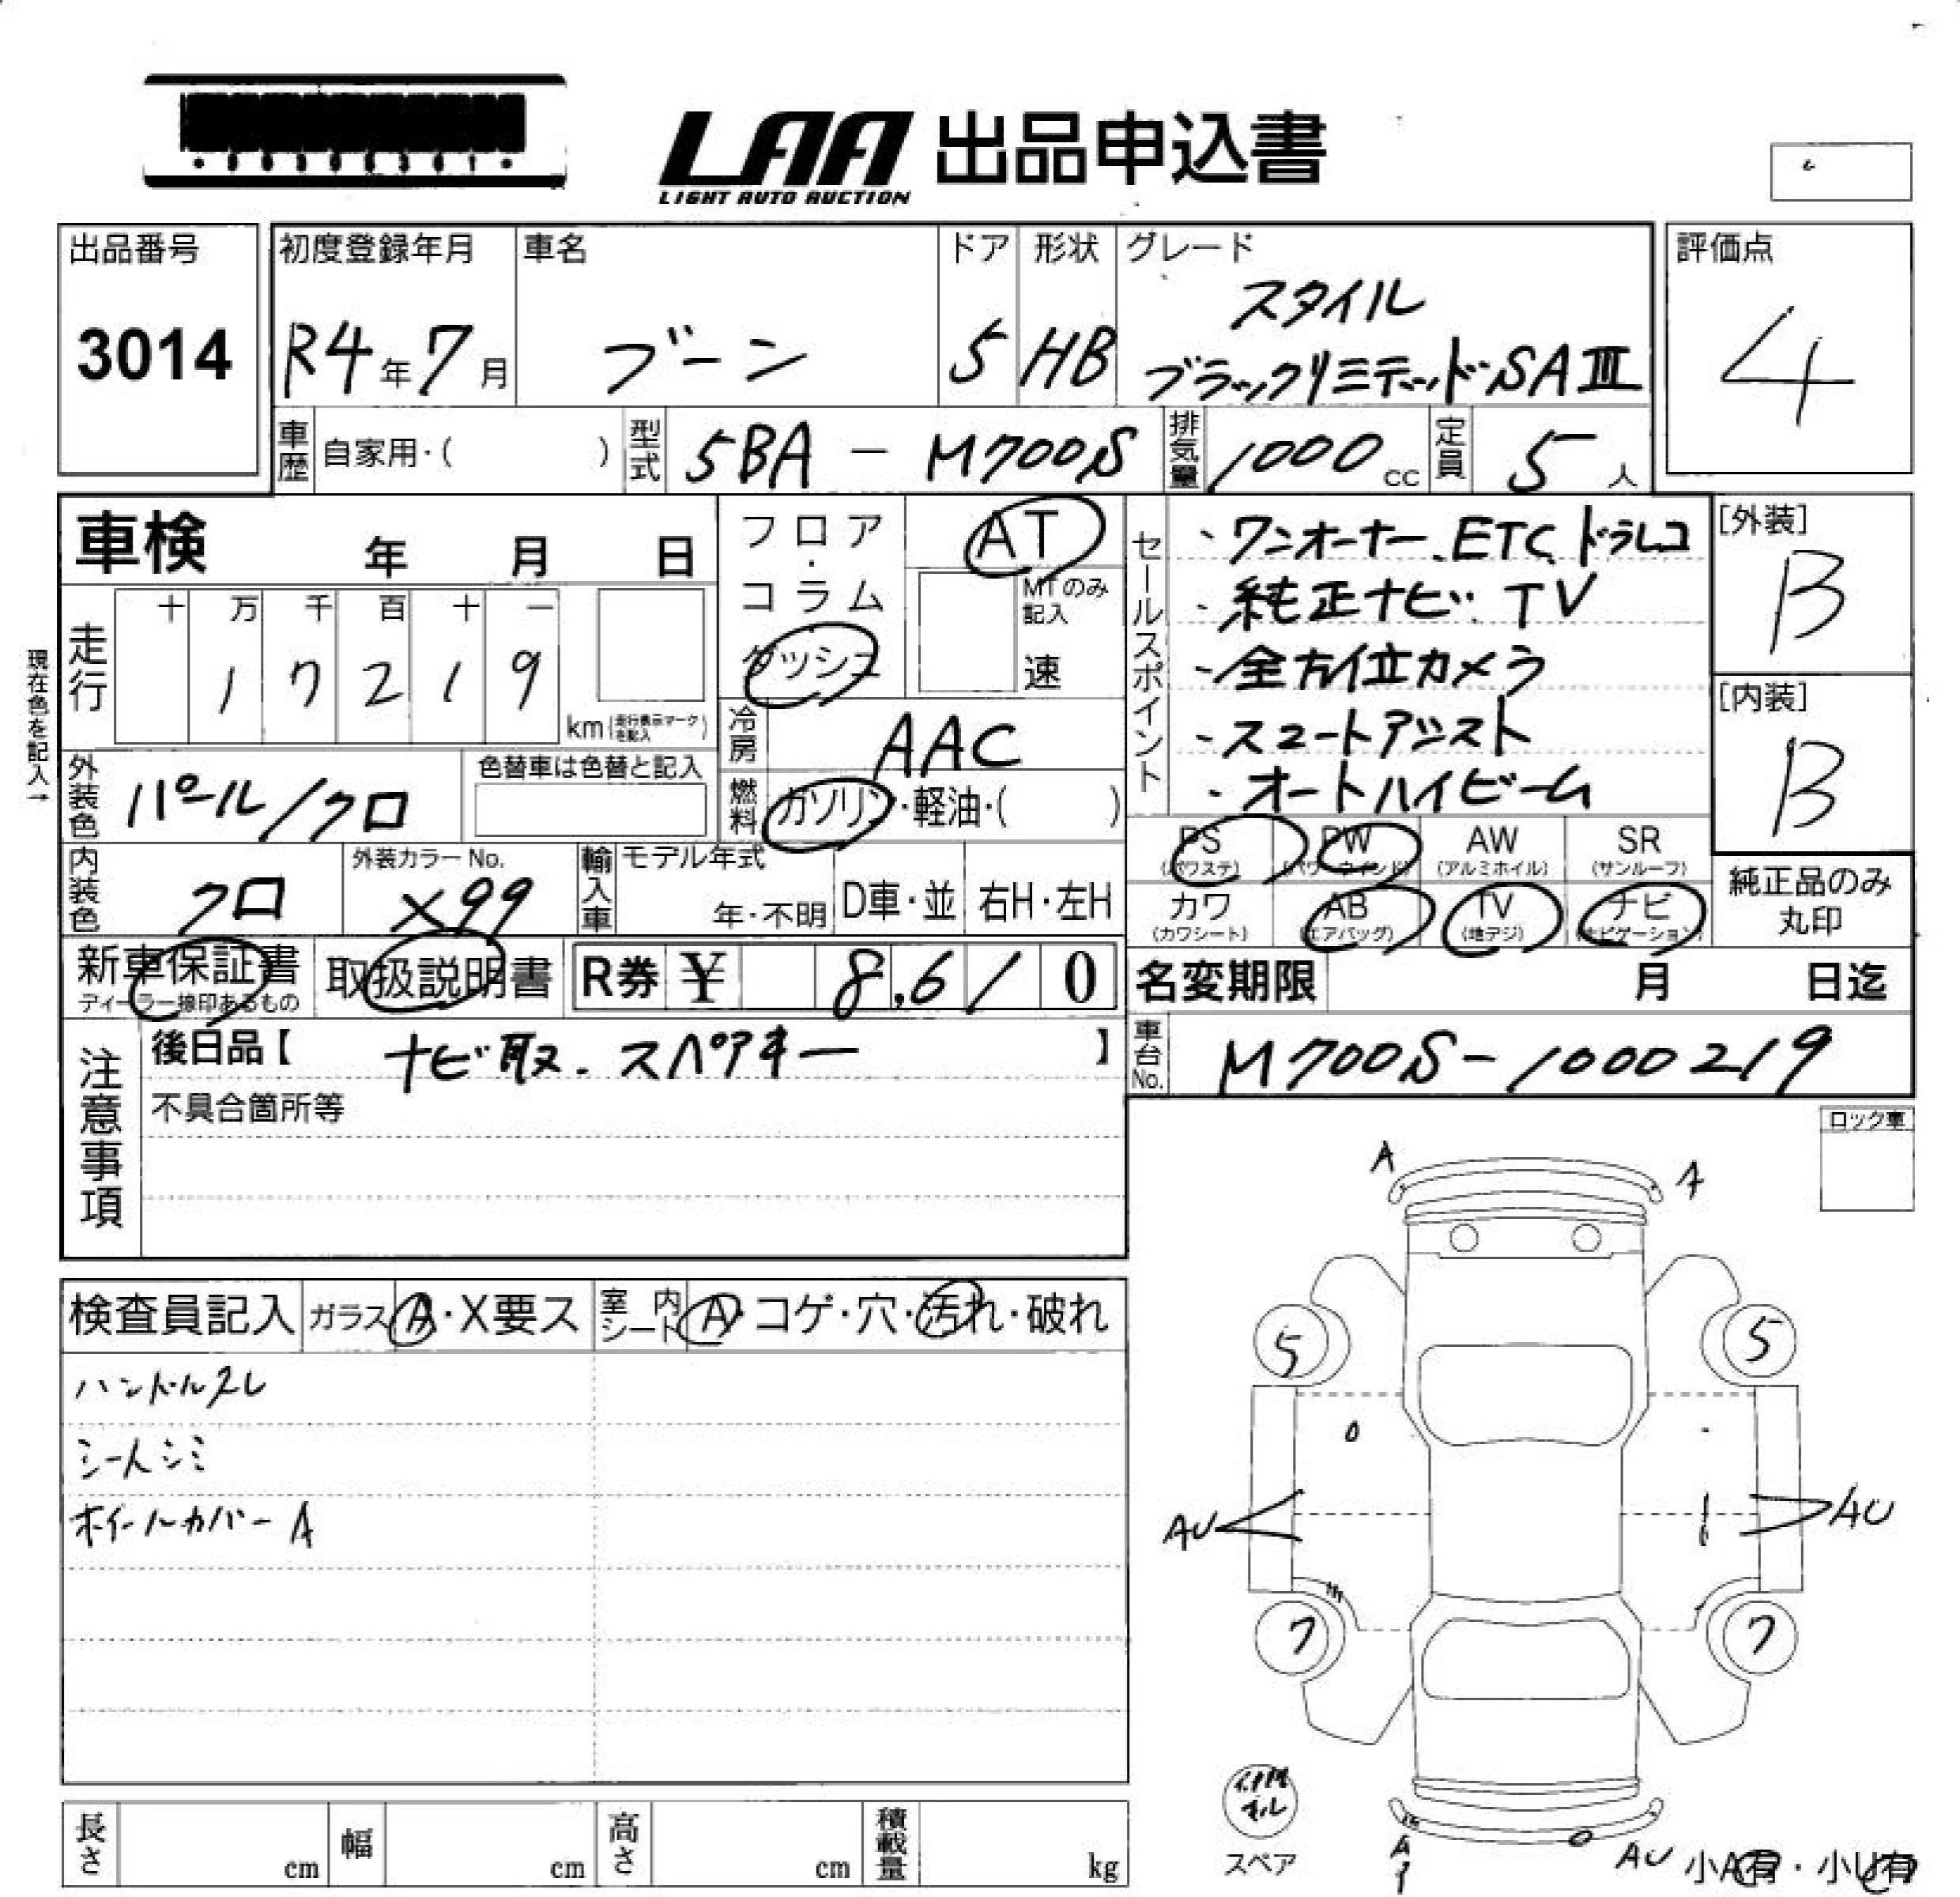 LAA 出品申込書
LIGHT AUTO AUCTION
出品番号
3014
初度登録年月
R4年7月
車名
ブーン
ドア
5
形状
HB
グレード
スタイル
ブラックリミテッド SAⅢ
評価点
4
車歴 自家用・( )
型式 5BA-M700S
排気量 1000cc
定員 5人
車検 年 月 日
フロア・コラム
ダッシュ
AT
MTのみ記入
速
現在色を記入→
走行
十 万 千 百 十 一
1 7 2 1 9
km(走行表示マークを記入)
冷房 AAC
燃料 ガソリン・軽油・( )
外装色 パール/クロ
色替車は色替と記入
セールスポイント
・ワンオーナー、ETC、ドラレコ
・純正ナビ、TV
・全方位カメラ
・スマートアシスト
・オートハイビーム
[外装]
B
[内装]
B
内装色 クロ
外装カラーNo.
X99
輸入車 モデル年式
年・不明 D車・並 右H・左H
PS (パワステ)
PW (パワーウインド)
AW (アルミホイル)
SR (サンルーフ)
カワ (カワシート)
AB (エアバッグ)
TV (地デジ)
ナビ (ナビゲーション)
純正品のみ
丸印
新車保証書
ディーラー捺印あるもの
取扱説明書
R券 ¥ 8,610
名変期限 月 日迄
車台No. M700S-1000219
注意事項
後日品【 ナビ取、スペアキー 】
不具合箇所等
ロック車
A
A
検査員記入 ガラス A・X要ス 室内シート A・コゲ・穴・汚れ・破れ
ハンドルスレ
シートシミ
ホイールカバーA
5
5
AU
AU
7
7
スペア
A
AU
小A有・小U有
長さ cm
幅 cm
高さ cm
積載量 kg